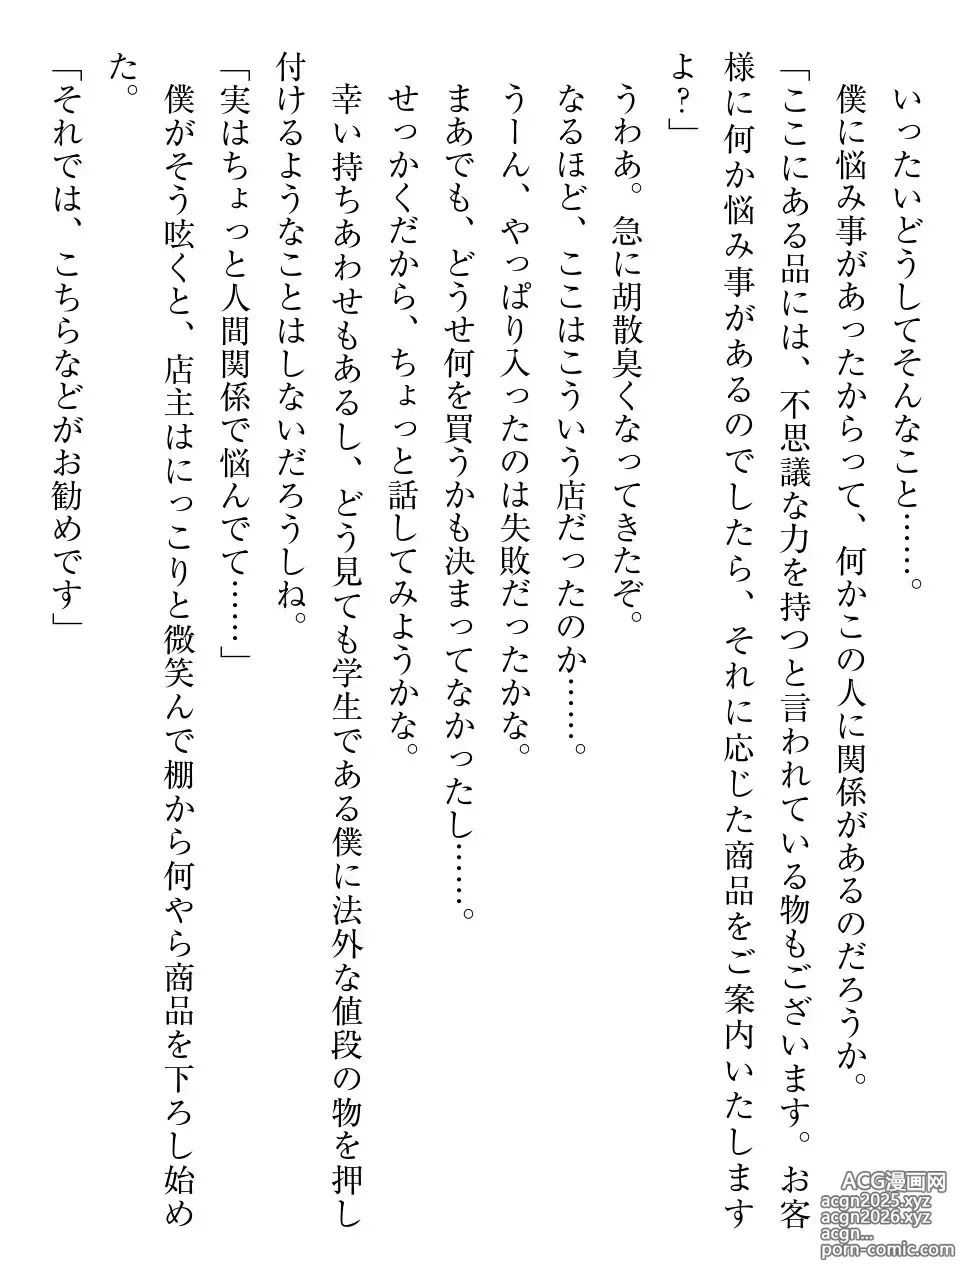 いったいどうしてそんなこと……。
僕に悩み事があったからって、何かこの人に関係があるのだろうか。
「ここにある品には、不思議な力を持つと言われている物もございます。お客
様に何か悩み事があるのでしたら、それに応じた商品をご案内いたします
よ?」
うわあ。急に胡散臭くなってきたぞ。
なるほど、ここはこういう店だったのか……。
うーん、やっぱり入ったのは失敗だったかな。
まあでも、どうせ何を買うかも決まってなかったし……。
せっかくだから、ちょっと話してみようかな。
幸い持ちあわせもあるし、どう見ても学生である僕に法外な値段の物を押し
付けるようなことはしないだろうしね。
「実はちょっと人間関係で悩んでて……」
僕がそう呟くと、店主はにっこりと微笑んで棚から何やら商品を下ろし始め
た。
「それでは、こちらなどがお勧めです」
ACG漫画网
acgn2025.xyz
acgn2026.xyz
acgn...
porn-comic.com